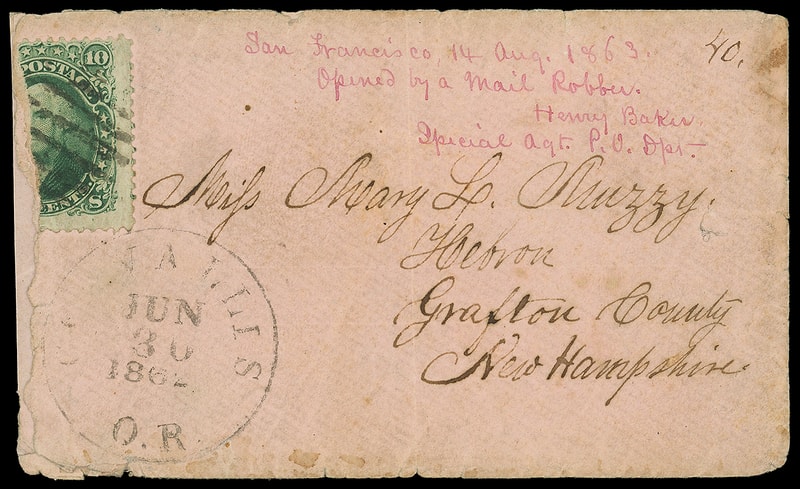 San Francisco, 14 Aug. 1863.
Opened by a Mail Robber.
Henry Baker
Special Agt. P. O. Dpt.
40.
10
POSTAGE
CENTS
S
Miſs Mary L. Muzzy.
Hebron
Grafton County
New Hampshire.
JUN
30
O.R.